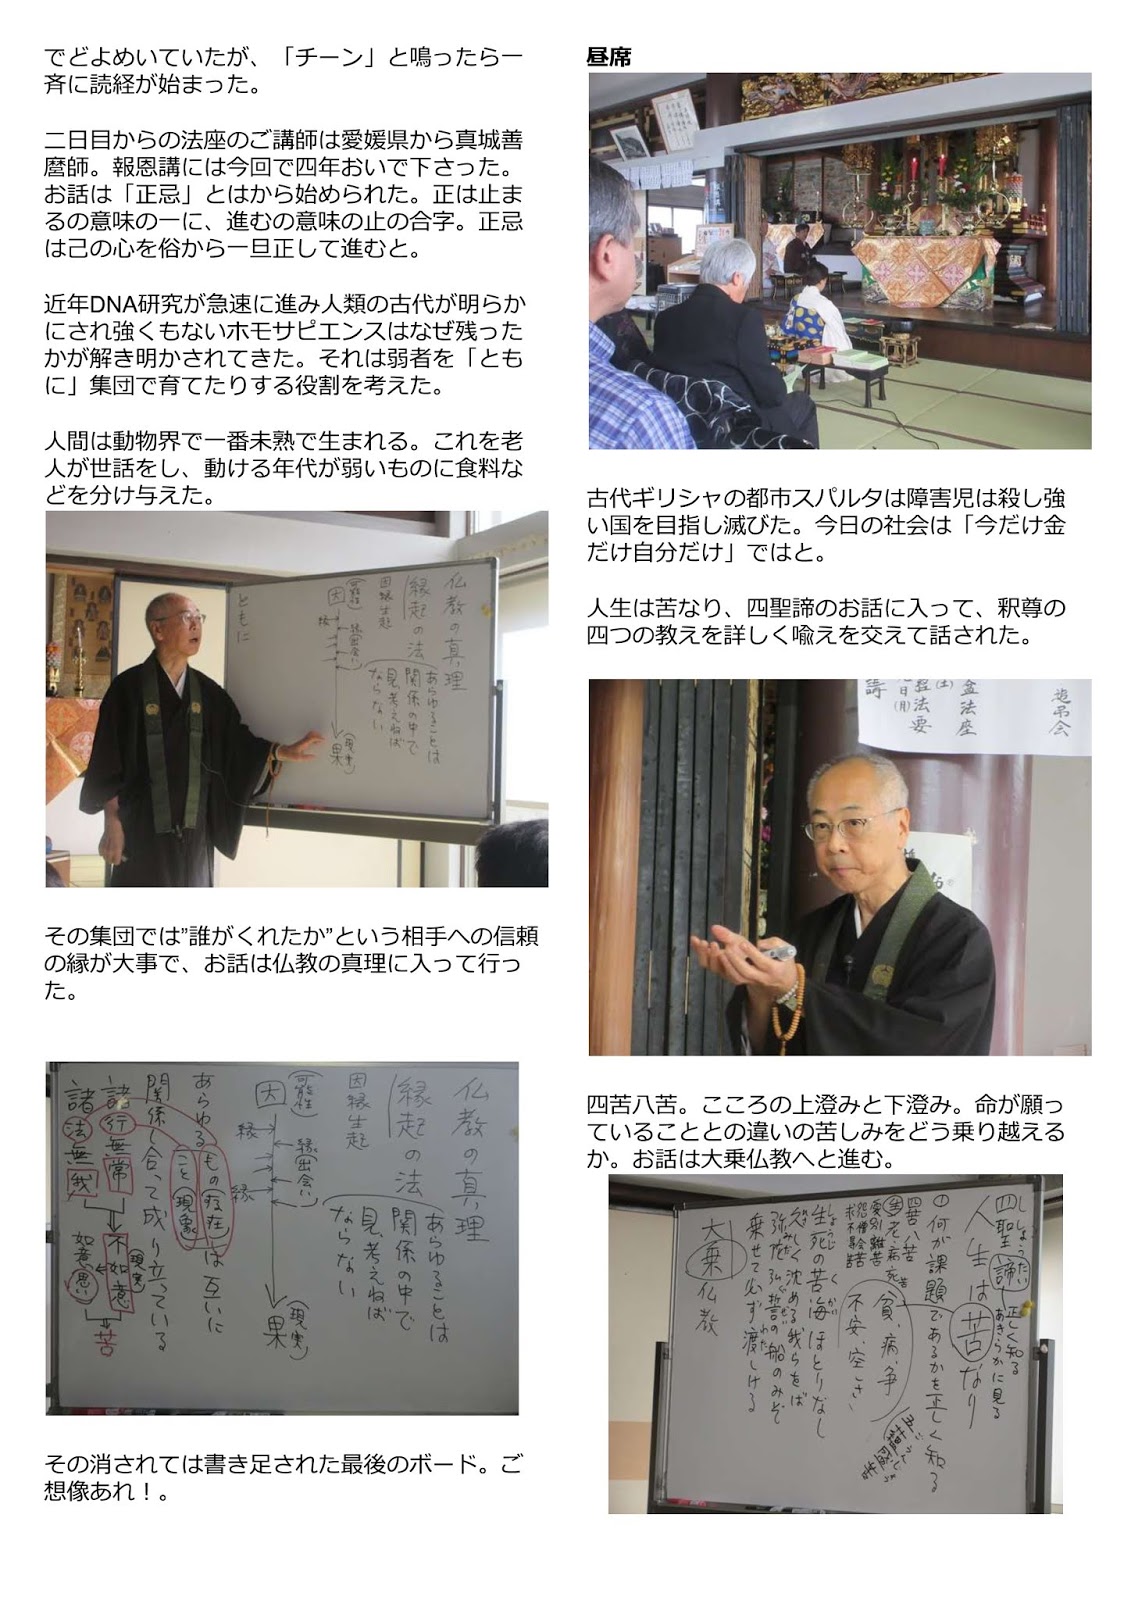 でどよめいていたが、「チーン」と鳴ったら一
斉に読経が始まった。
二日目からの法座のご講師は愛媛県から真城善
麿師。報恩講には今回で四年おいで下さった。
お話は「正忌」とはから始められた。正は止ま
るの意味の一に、進むの意味の止の合字。正忌
は己の心を俗から一旦正して進むと。
近年DNA研究が急速に進み人類の古代が明らか
にされ強くもないホモサピエンスはなぜ残った
かが解き明かされてきた。それは弱者を「とも
に」集団で育てたりする役割を考えた。
人間は動物界で一番未熟で生まれる。これを老
人が世話をし、動ける年代が弱いものに食料な
どを分け与えた。
仏教の真理
縁起の法
因縁生起
あらゆることは
関係の中で
見、考えねば
ならない
(可能性)
因
縁
縁(出会い)
果
(現実)
ともに
その集団では”誰がくれたか”という相手への信頼
の縁が大事で、お話は仏教の真理に入って行っ
た。
仏教の真理
縁起の法
あらゆることは
関係の中で
見、考えねば
ならない
因縁生起
(可能性)
因
縁
縁(出会い)
縁
果
(現実)
あらゆるもの(存在)は互いに
こと(現象)
関係し合って成り立っている
諸行無常
諸法無我
不如意
(現実)
如意(思い)
苦
その消されては書き足された最後のボード。ご
想像あれ！。
昼席
古代ギリシャの都市スパルタは障害児は殺し強
い国を目指し滅びた。今日の社会は「今だけ金
だけ自分だけ」ではと。
人生は苦なり、四聖諦のお話に入って、釈尊の
四つの教えを詳しく喩えを交えて話された。
追弔会
盆法座
(土)
盆法要
日(月)
講
四苦八苦。こころの上澄みと下澄み。命が願っ
ていることとの違いの苦しみをどう乗り越える
か。お話は大乗仏教へと進む。
ししょうたい
四聖諦
正しく知る
あきらかに見る
人生は苦なり
①何が課題であるかを正しく知る
四苦八苦
生老病死苦
愛別離苦
怨憎会苦
求不得苦
五蘊盛苦
貧、病、争
不安、空しさ
生死の苦海ほとりなし
久しく沈める我らをば
弥陀弘誓の船のみぞ
乗せて必ず渡しける
大乗仏教